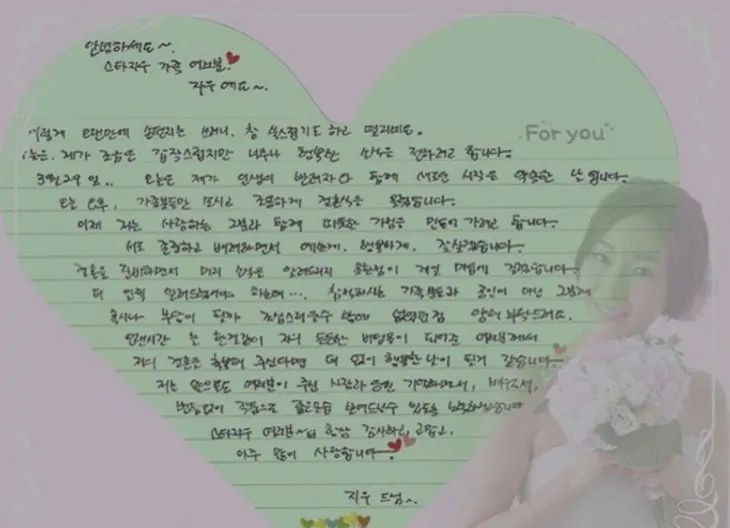 안녕하세요~.
스타지우 가족 여러분.
지우예요~.
이렇게 오랜만에 손편지를 쓰려니, 참 쑥스럽기도 하고 떨리네요.
오늘은, 제가 조금은 갑작스럽지만 너무나 행복한 소식을 전하려고 합니다.
For you
3월 29일.. 오늘은 제가 인생의 반려자와 함께 새로운 시작을 약속한 날입니다.
오늘 오후, 가족분들만 모시고 조용하게 결혼식을
이제 저는 사랑하는 그분과 함께 따뜻한 가정을 만들어 가려고 합니다.
서로 존중하고 배려하면서 예쁘게, 행복하게, 잘살겠습니다.
결혼을 준비하면서 미리 소식을 알려드리지 못한점이 제일 마음에 걸렸습니다.
더 일찍 알려드렸어야 하는데···, 참석하시는 가족분들과 공인이 아닌 그분께
혹시나 부담이 될까 조심스러울수 밖에 없었던점 양해 부탁드려요.
오랜시간 늘 한결같이 저의 든든한 버팀목이 되어준 여러분께서
저의 결혼을 축복해 주신다면 더 없이 행복한 날이 될거 같습니다
저는 앞으로도 여러분이 주신 사랑과 응원 기억하면서, 배우로서,
변함없이 작품으로 좋은모습 보여드릴수 있도록 노력하겠습니다
스타지우 여러분~ 항상 감사하고, 고맙고,
아주 많이 사랑합니다
지우 드림~.